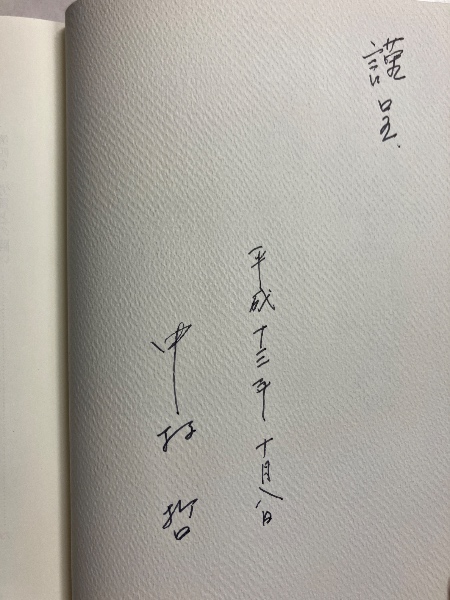 謹呈
平成十三年十月八日
中村哲